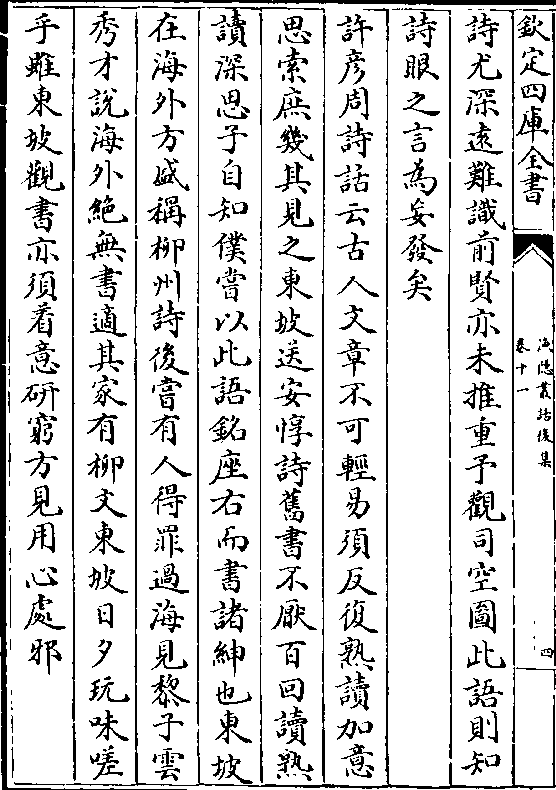 欽定四庫全書
漁隱叢話後集
卷十一
四
詩尤深逺難識前賢亦未推重予觀司空圖此語則知
詩眼之言為妄發矣
許彦周詩話云古人文章不可輕易須反復熟讀加意
思索庶幾其見之東坡送安惇詩舊書不厭百回讀熟
讀深思子自知僕嘗以此語銘座右而書諸紳也東坡
在海外方盛稱柳州詩後嘗有人得罪過海見黎子雲
秀才説海外絶無書適其家有柳文東坡日夕玩味嗟
乎雖東坡觀書亦須着意研窮方見用心處邪